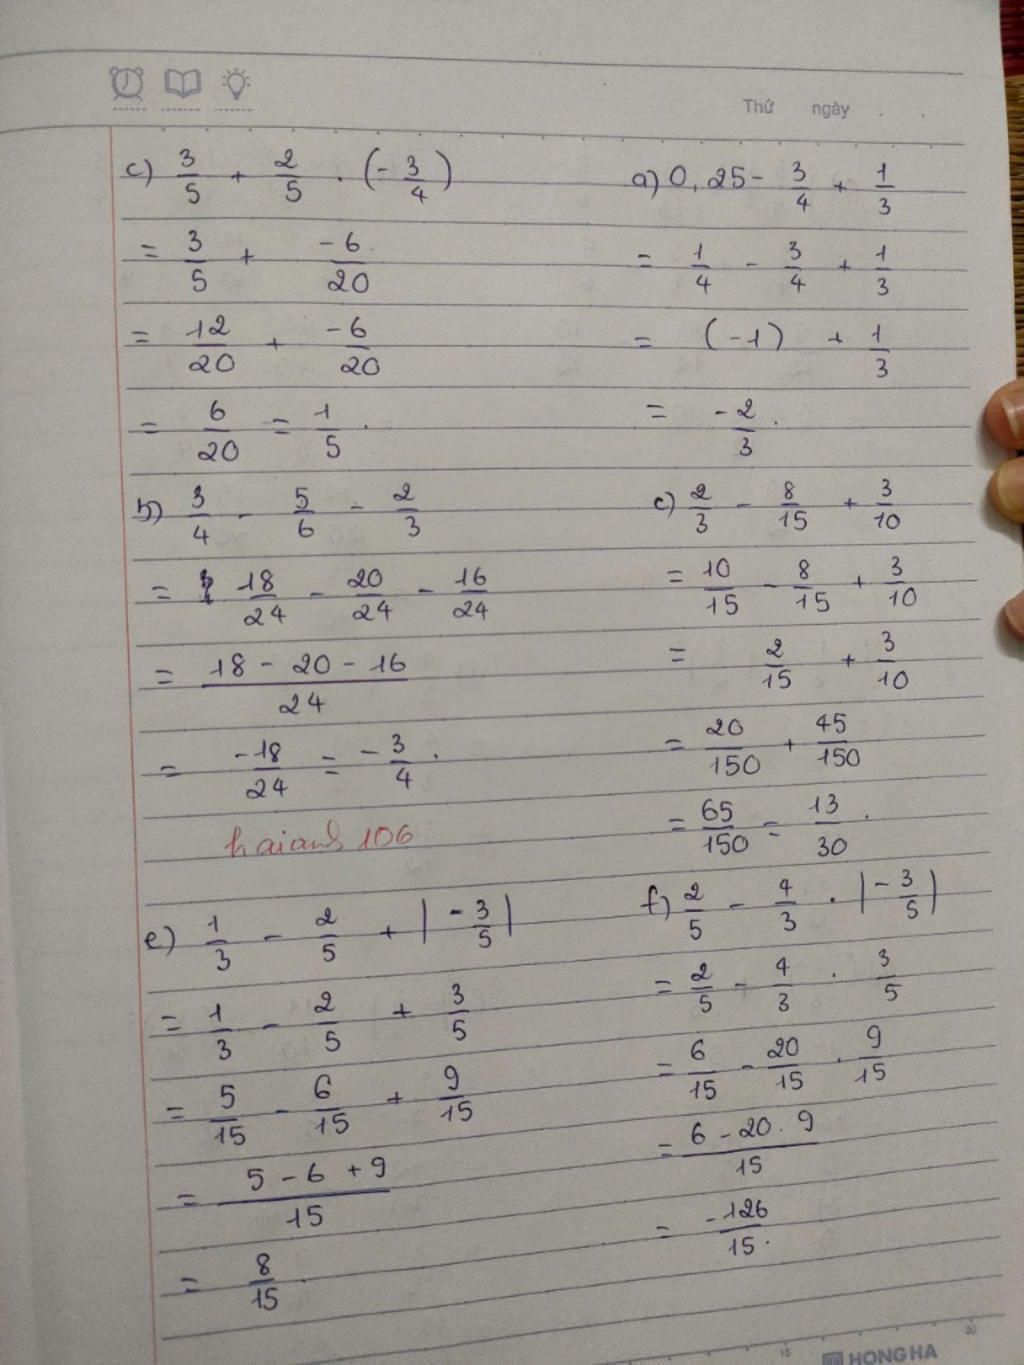 Thứ ngày
c) 3/5 + 2/5 . (-3/4)
= 3/5 + -6/20
= 12/20 + -6/20
= 6/20 = 1/5 .
b) 3/4 - 5/6 - 2/3
= 18/24 - 20/24 - 16/24
= 18 - 20 - 16 / 24
= -18/24 = -3/4 .
haianh 106
e) 1/3 - 2/5 + |-3/5|
= 1/3 - 2/5 + 3/5
= 5/15 - 6/15 + 9/15
= 5 - 6 + 9 / 15
= 8/15
a) 0,25 - 3/4 + 1/3
= 1/4 - 3/4 + 1/3
= (-1) + 1/3
= -2/3 .
c) 2/3 - 8/15 + 3/10
= 10/15 - 8/15 + 3/10
= 2/15 + 3/10
= 20/150 + 45/150
= 65/150 = 13/30 .
f) 2/5 - 4/3 . |-3/5|
= 2/5 - 4/3 . 3/5
= 6/15 - 20/15 . 9/15
= 6 - 20 . 9 / 15
= -126/15 .
15
20
HONG HA